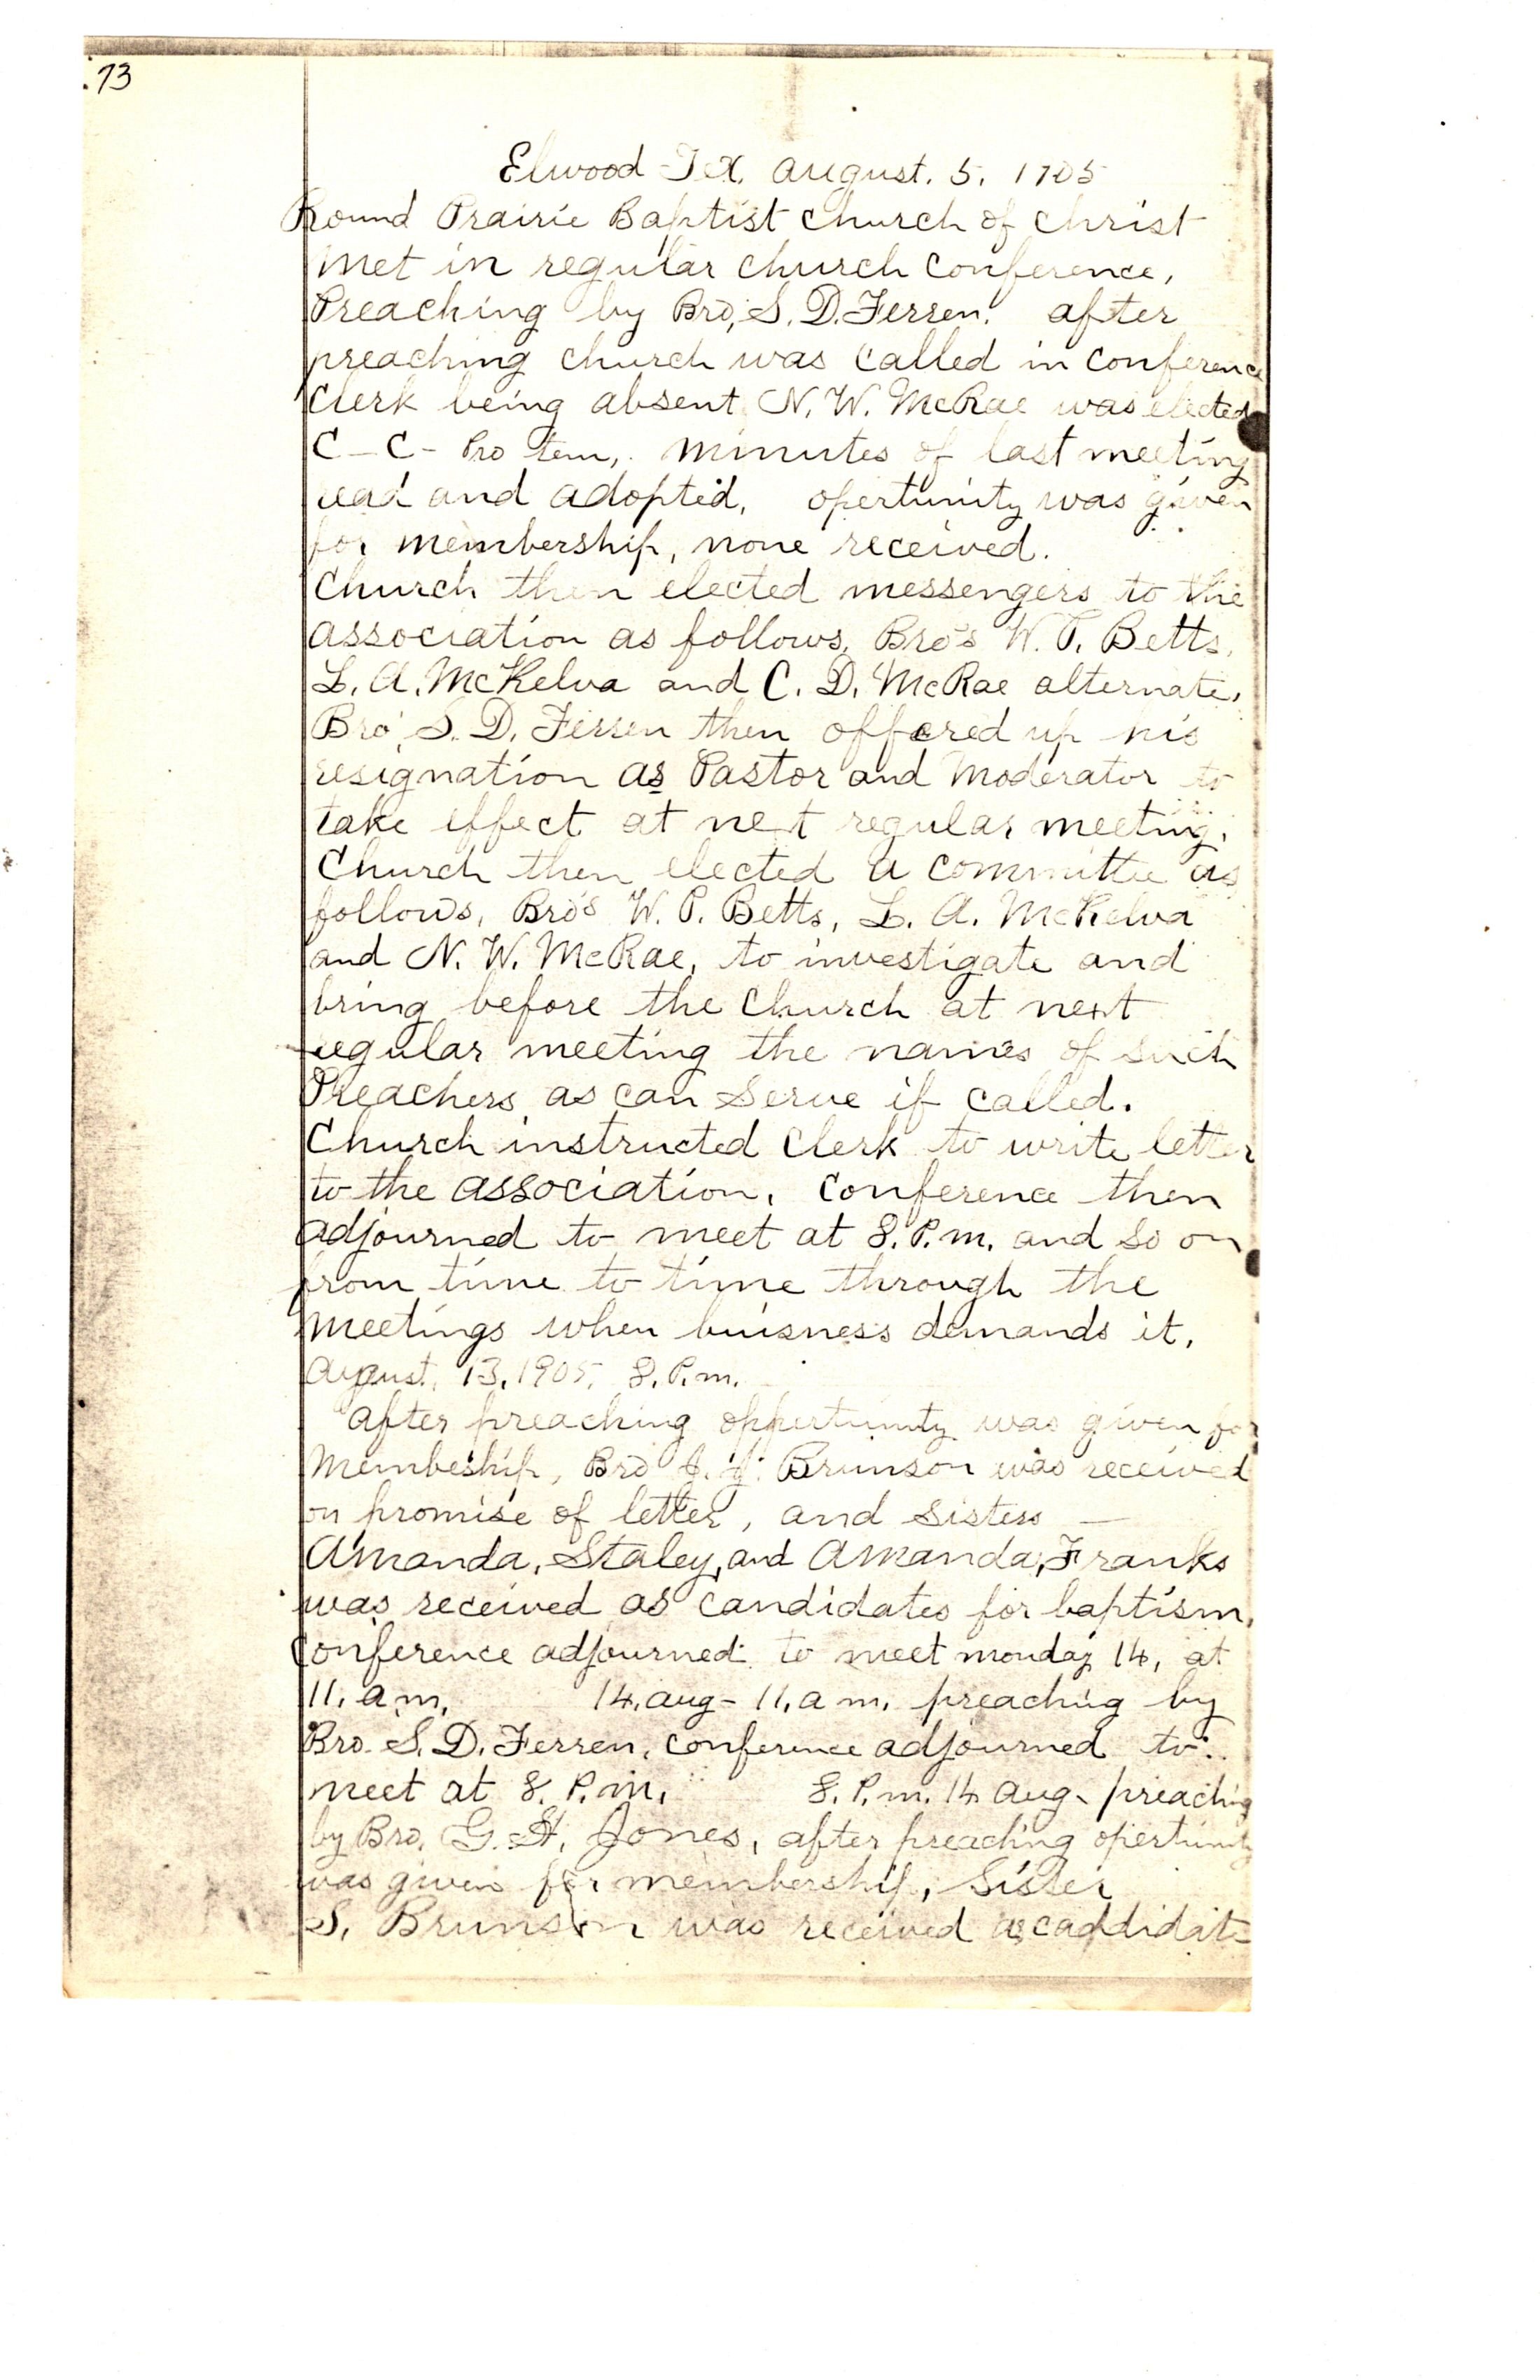 73
Elwood Tex, august. 5, 1905
Round Prairie Baptist church of christ
met in regular church conference,
Preaching by Bro, S. D. Ferren. after
preaching church was called in conference
clerk being absent, N. W. McRae was elected
C - C - Pro tem,. minutes of last meeting
read and adopted, opertunity was given
for membership, none received.
Church then elected messengers to the
association as follows, Bro's W. P. Betts,
L. A. McKelva and C. D. McRae alternate,
Bro, S. D. Ferren then offered up his
resignation as Pastor and Moderator to
take effect at next regular meeting.
Church then elected a committee as
follows, Bro's W. P. Betts, L. A. McKelva
and N. W. McRae, to investigate and
bring before the church at next
regular meeting the names of such
Preachers as can serve if called.
Church instructed clerk to write letter
to the association, conference then
adjourned to meet at 8. P.m. and so on
from time to time through the
meetings when buisness demands it,
August, 13, 1905, 8. P.m.
after preaching oppertunity was given for
membeship, Bro J. J. Brunson was received
on promise of letter, and sisters —
Amanda, Staley, and Amanda, Franks
was received as candidates for baptism,
conference adjourned to meet monday 14, at
11, a m, 14. aug - 11, a m, preaching by
Bro. S. D. Ferren, conference adjourned to
meet at 8. P.m, 8. P.m. 14 aug - preaching
by Bro, G. H. Jones, after preaching opertunity
was given for membership, Sister
S, Brunson was received as caddidate